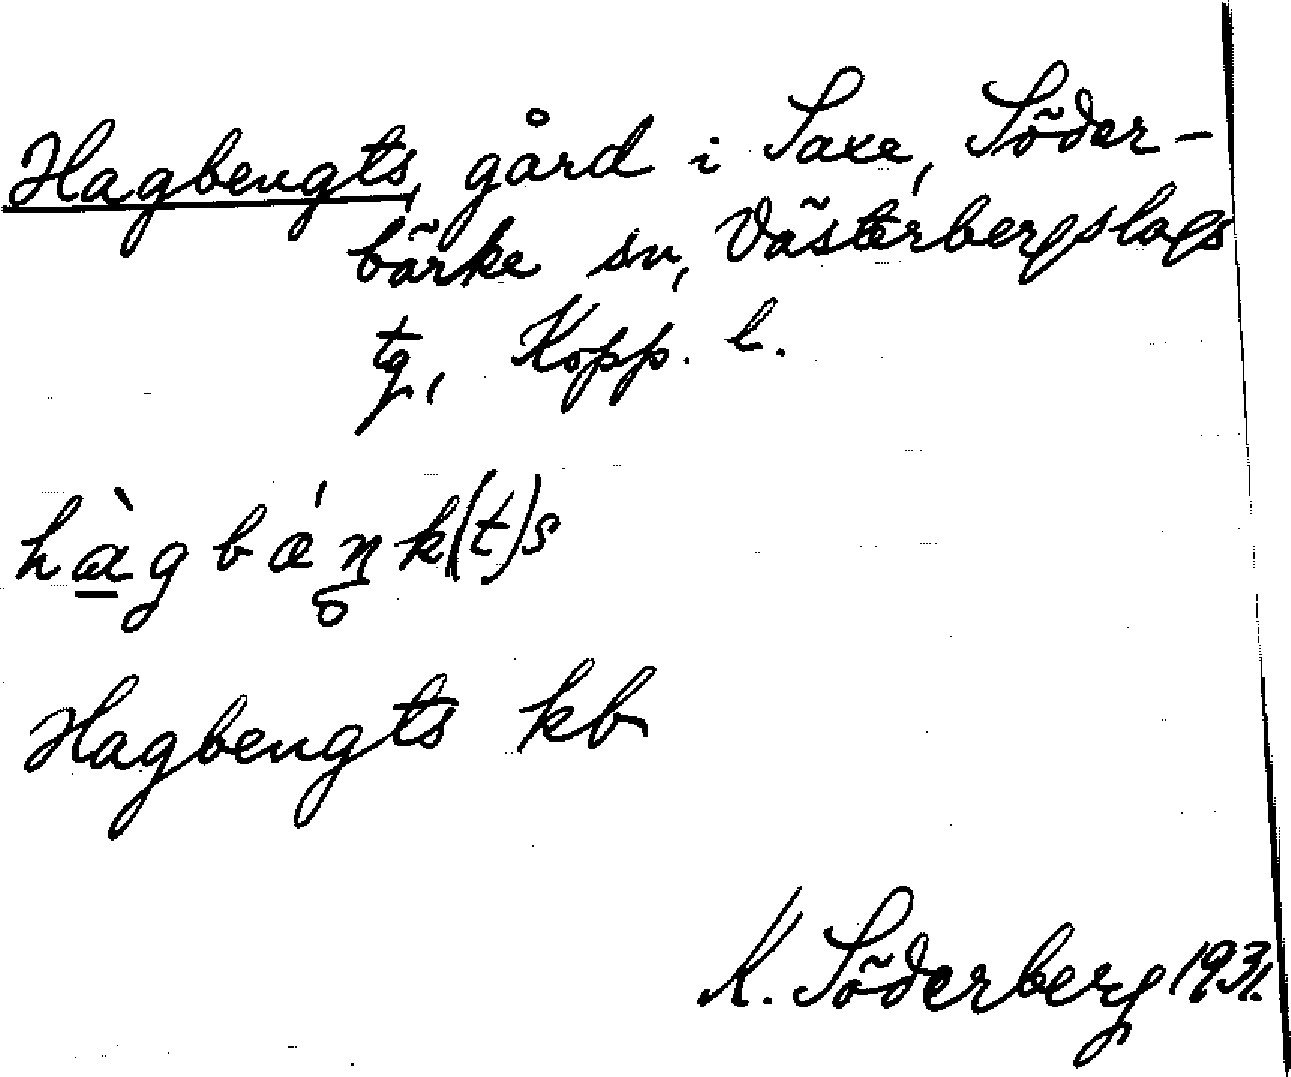 Hagbengts, gård i Saxe, Söder-
bärke sn, Västerbergslags
tg, Kopp. l.
hàgbǽŋk(t)s
Hagbengts kb
K. Söderberg 1931.